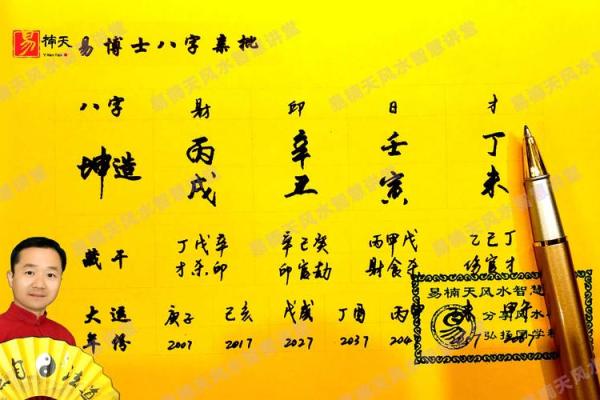 易 楠天 易博士八字亲批
Yi Nan Tian
八字 财 印 日 才
坤造 丙戌 辛丑 壬寅 丁未
藏干 丁戊辛 辛己癸 丙甲戊 乙己丁
才杀印 印官劫 财食杀 伤官才
大运 庚子 己亥 戊戌 丁酉 丙申
年份 2007 2017 2027 2037 204
易楠天风水智慧
分享风水
弘扬国学
易
易楠天风水智慧讲堂